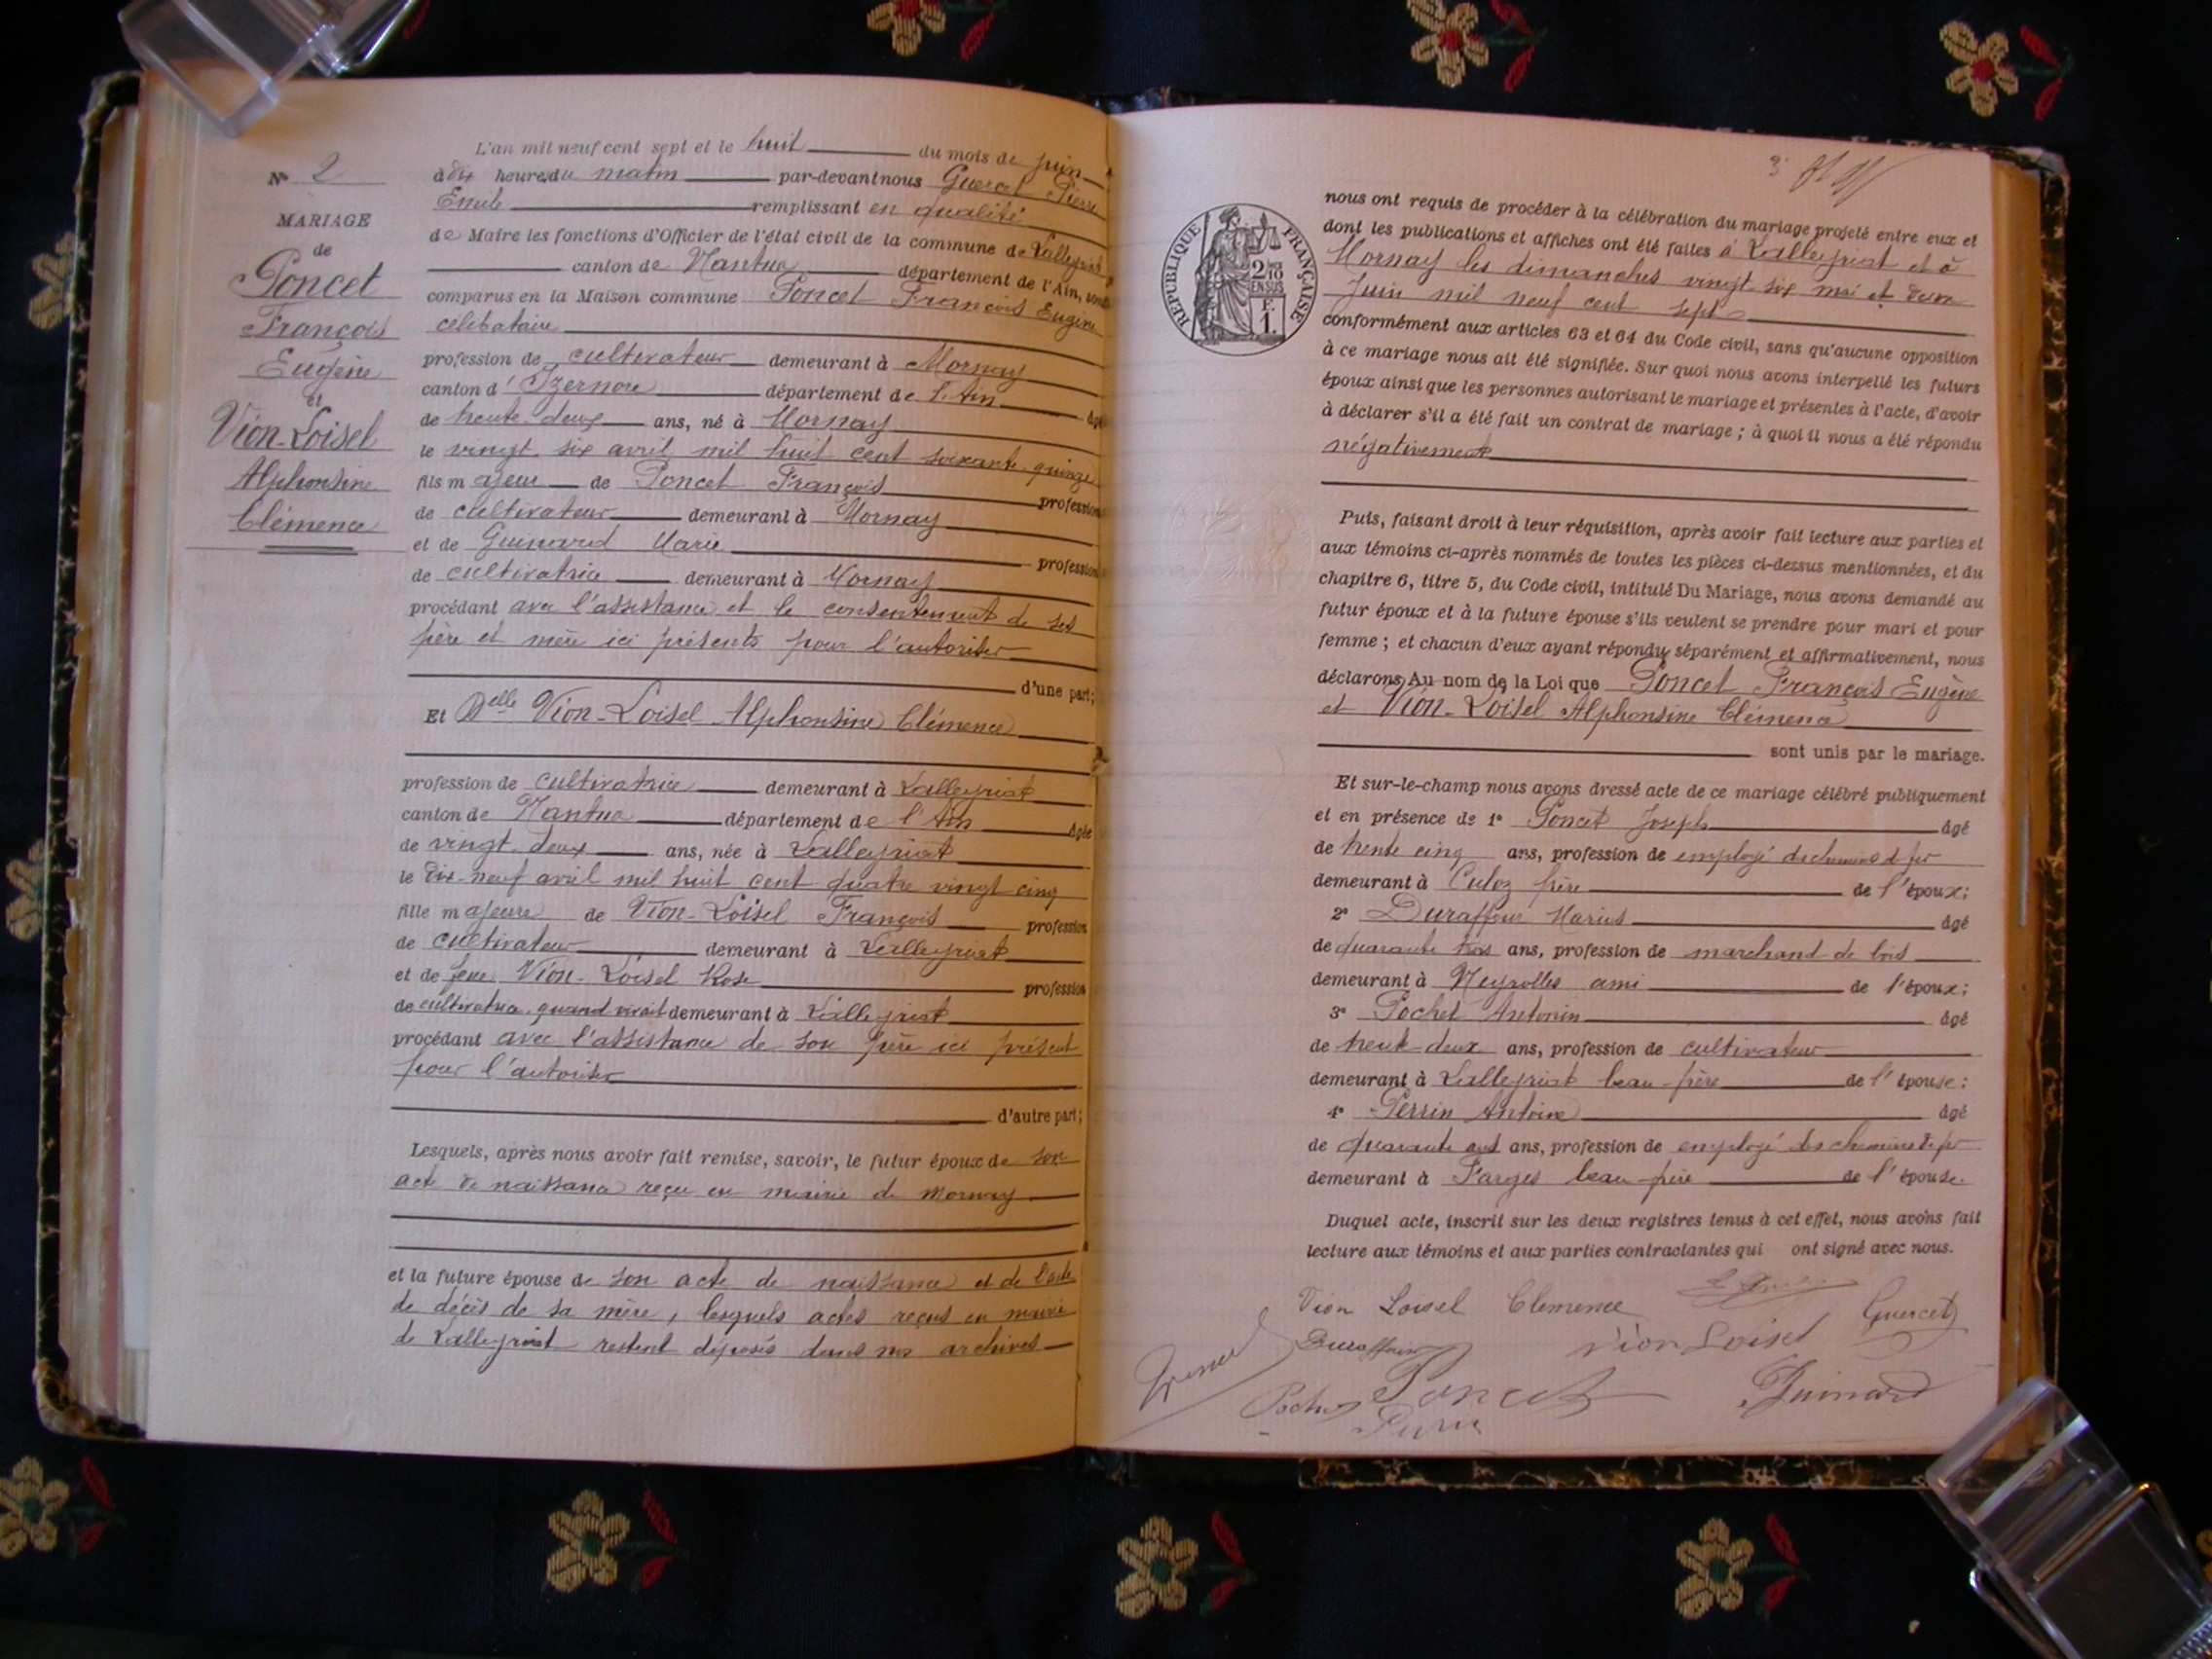 N° 2
MARIAGE
de
Poncet
François
Eugène
et
Vion-Loisel
Alphonsine
Clémence
L'an mil neuf cent sept et le huit du mois de juin
à dix heures du matin par-devant nous Guercet Pierre
Emile remplissant en qualité
de Maire les fonctions d'Officier de l'état civil de la commune de Lalleyriat
canton de Nantua département de l'Ain, sont
comparus en la Maison commune Poncet François Eugène
célibataire
profession de cultivateur demeurant à Mornay
canton d'Izernore département de l'Ain âgé
de trente-deux ans, né à Mornay
le vingt six avril mil huit cent soixante quinze
fils majeur de Poncet François profession
de cultivateur demeurant à Mornay
et de Guinard Marie profession
de cultivatrice demeurant à Mornay
procédant avec l'assistance et le consentement de ses
père et mère ici présents pour l'autoriser
d'une part;
Et Delle Vion-Loisel Alphonsine Clémence
profession de cultivatrice demeurant à Lalleyriat
canton de Nantua département de l'Ain âgée
de vingt-deux ans, née à Lalleyriat
le dix-neuf avril mil huit cent quatre vingt cinq
fille majeure de Vion-Loisel François profession
de cultivateur demeurant à Lalleyriat
et de feue Vion-Loisel Rose profession
de cultivatrice quand vivait demeurant à Lalleyriat
procédant avec l'assistance de son père ici présent
pour l'autoriser
d'autre part;
Lesquels, après nous avoir fait remise, savoir, le futur époux de son
acte de naissance reçu en mairie de Mornay
et la future épouse de son acte de naissance et de l'acte
de décès de sa mère, lesquels actes reçus en mairie
de Lalleyriat restent déposés dans nos archives
nous ont requis de procéder à la célébration du mariage projeté entre eux et
dont les publications et affiches ont été faites à Lalleyriat et à
Mornay les dimanches vingt six mai et deux
juin mil neuf cent sept
conformément aux articles 63 et 64 du Code civil, sans qu'aucune opposition
à ce mariage nous ait été signifiée. Sur quoi nous avons interpellé les futurs
époux ainsi que les personnes autorisant le mariage et présentes à l'acte, d'avoir
à déclarer s'il a été fait un contrat de mariage; à quoi il nous a été répondu
négativement
RÉPUBLIQUE FRANÇAISE
2/10 EN SUS
F. 1.
Puis, faisant droit à leur réquisition, après avoir fait lecture aux parties et
aux témoins ci-après nommés de toutes les pièces ci-dessus mentionnées, et du
chapitre 6, titre 5, du Code civil, intitulé Du Mariage, nous avons demandé au
futur époux et à la future épouse s'ils veulent se prendre pour mari et pour
femme; et chacun d'eux ayant répondu séparément et affirmativement, nous
déclarons Au nom de la Loi que Poncet François Eugène
et Vion-Loisel Alphonsine Clémence
sont unis par le mariage.
Et sur-le-champ nous avons dressé acte de ce mariage célébré publiquement
et en présence de 1° Poncet Joseph âgé
de trente cinq ans, profession de employé de chemins de fer
demeurant à Culoz frère de l'époux;
2° Duraffour Marius âgé
de quarante trois ans, profession de marchand de bois
demeurant à Neyrolles ami de l'époux;
3° Pochet Antonin âgé
de trente-deux ans, profession de cultivateur
demeurant à Lalleyriat beau-frère de l'épouse;
4° Perrin Antoine âgé
de quarante ans, profession de employé des chemins de fer
demeurant à Farges beau-frère de l'épouse.
Duquel acte, inscrit sur les deux registres tenus à cet effet, nous avons fait
lecture aux témoins et aux parties contractantes qui ont signé avec nous.
Vion Loisel Clemence
Guercet
Duraffour
Vion Loisel
Poncet
Guinard
Pochet
Perrin